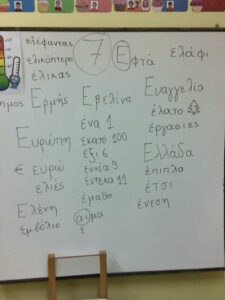 ελέφαντας
ελικόπτερο
έλικας
7 Εφτά
ελάφι
Ερμής
Ευρώπη
€ ευρώ
ελιές
Ελένη
εμβόλιο
Εβελίνα
ένα 1
εκατό 100
έξι 6
εννέα 9
έντεκα 11
έμαθα
αίμα
ε
Ευαγγελία
έλατο
εργασίες
Ελλάδα
έπιπλα
έτσι
ένεση